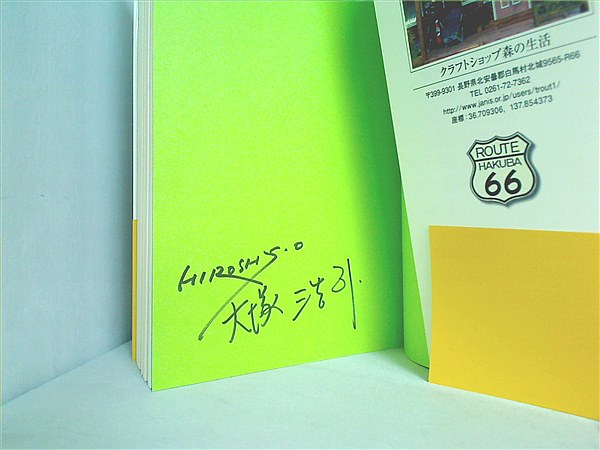 HIROSHI.O
大塚 浩司.
クラフトショップ森の生活
〒399-9301 長野県北安曇郡白馬村北城9565-R66
TEL 0261-72-7362
http://www.janis.or.jp/users/trout1/
座標:36.709306, 137.854373
ROUTE
HAKUBA
66